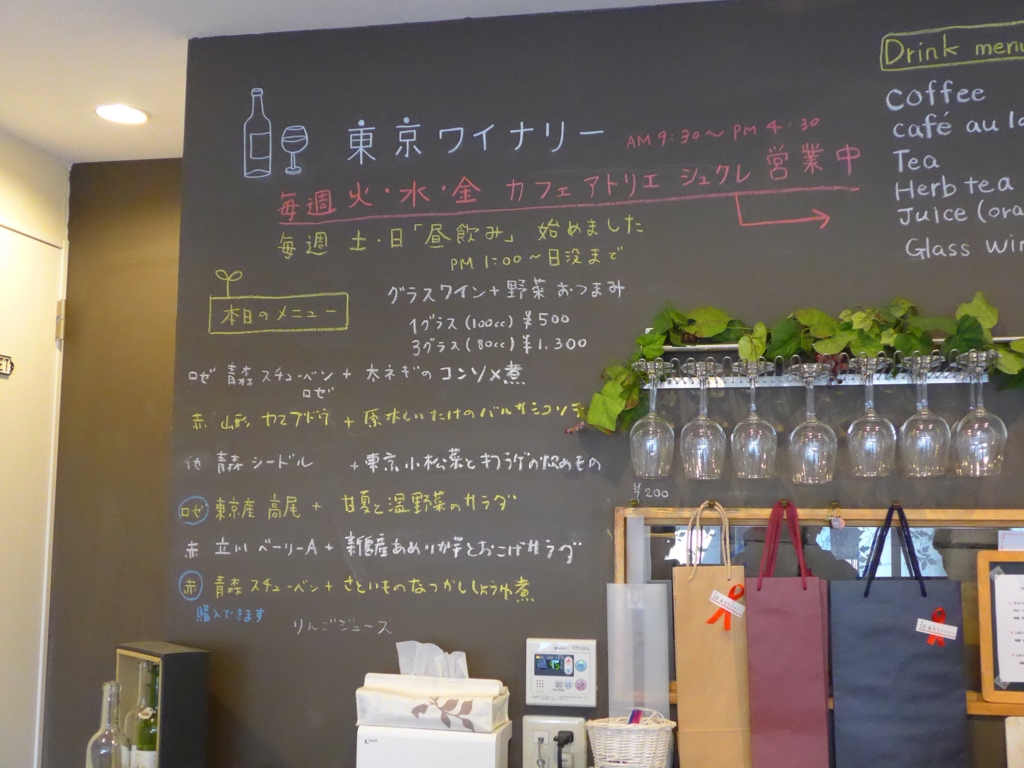 東京ワイナリー
AM 9:30～PM 4:30
毎週 火・水・金 カフェ アトリエ シュクレ 営業中
毎週 土・日「昼飲み」 始めました
PM 1:00～日没まで
本日のメニュー
グラスワイン+野菜おつまみ
1グラス(100cc) ¥500
3グラス(80cc) ¥1.300
ロゼ 青森 スチューベン + 太ネギのコンソメ煮
ロゼ
赤 山形 ヤマブドウ + 原木しいたけのバルサミコソテ
青森 シードル +東京小松菜とキクラゲの炒めもの
ロゼ 東京産 高尾 + 甘夏と温野菜のサラダ
赤 立川 ベーリーA + 新倉産あめりか芋とおこげサラダ
赤 青森 スチューベン + さといものなつかししょうゆ煮
購入できます
りんごジュース
Drink menu
Coffee
café au la
Tea
Herb tea
Juice (ora
Glass win
¥200